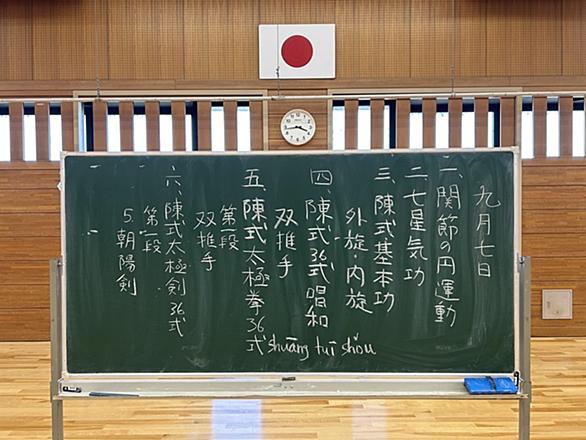 九月七日
一、関節の円運動
二、七星気功
三、陳式基本功
外旋・内旋
四、陳式36式唱和
双推手
五、陳式太極拳36式
第一段
双推手
shuāng tuī shǒu
六、陳式太極剣36式
第一段
5.朝陽剣